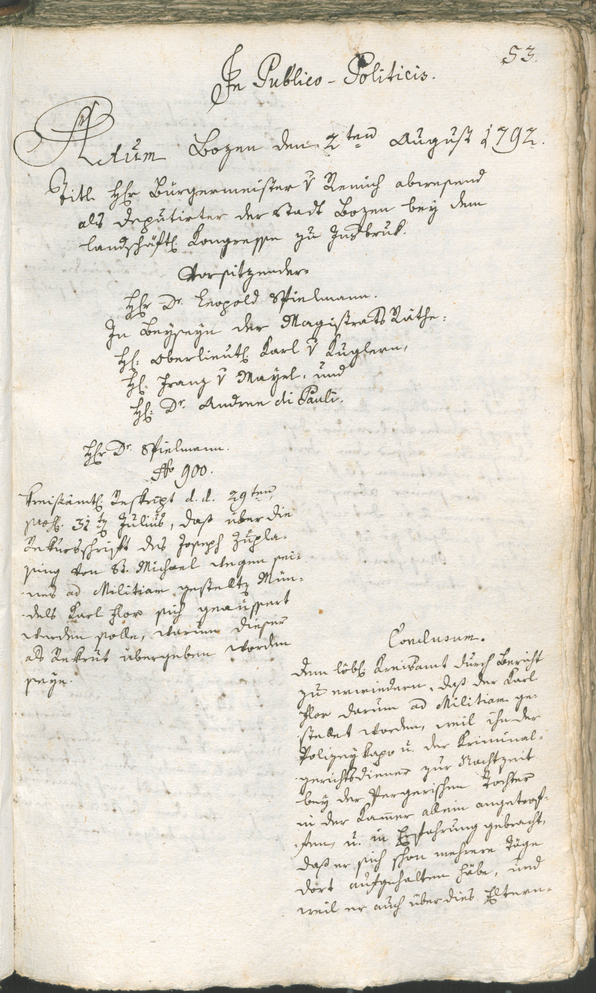 53.
In Publico-Politicis.
Actum Bozen den 2ten August 1792.
Titl. Hr. Bürgermeister v Remich abwesend
als Deputirter der Stadt Bozen bey dem
landschäftl. Kongresse zu Insbruk.
Vorsitzender
Hr. Dr. Leopold Spielmann.
In Beyseyn der Magistrats Räthe:
H: Oberlieutn. Karl v Kuglern,
H: Franz v Mayrl, und
H: Dr. Andree di Pauli.
Hr. Dr. Spielmann.
No 900.
Kreisämtl. Reskript d. d. 29ten
praes. 31 Julius, daß über die
Rekursschrift des Joseph Zupla-
sing von St. Michael wegen sei-
nes ad Militiam gestellten Mün-
dels Karl Flor sich geaüssert
werden solle, warum dieser
als Rekrut übergeben worden
seye.
Conclusum.
Dem löbl. Kreisamt durch Bericht
zu erwiedern, daß der Karl
Flor darum ad Militiam ge-
stellet worden, weil ihn der
Polizeykapo u. der Kriminal-
gerichtsdiener zur Nachtzeit
bey der Pergerischen Tochter
in der Kamer allein angetrof-
fen, u. in Erfahrung gebracht,
daß er sich schon mehrere Täge
dort aufgehalten habe, und
weil er auch über dies Eltern-